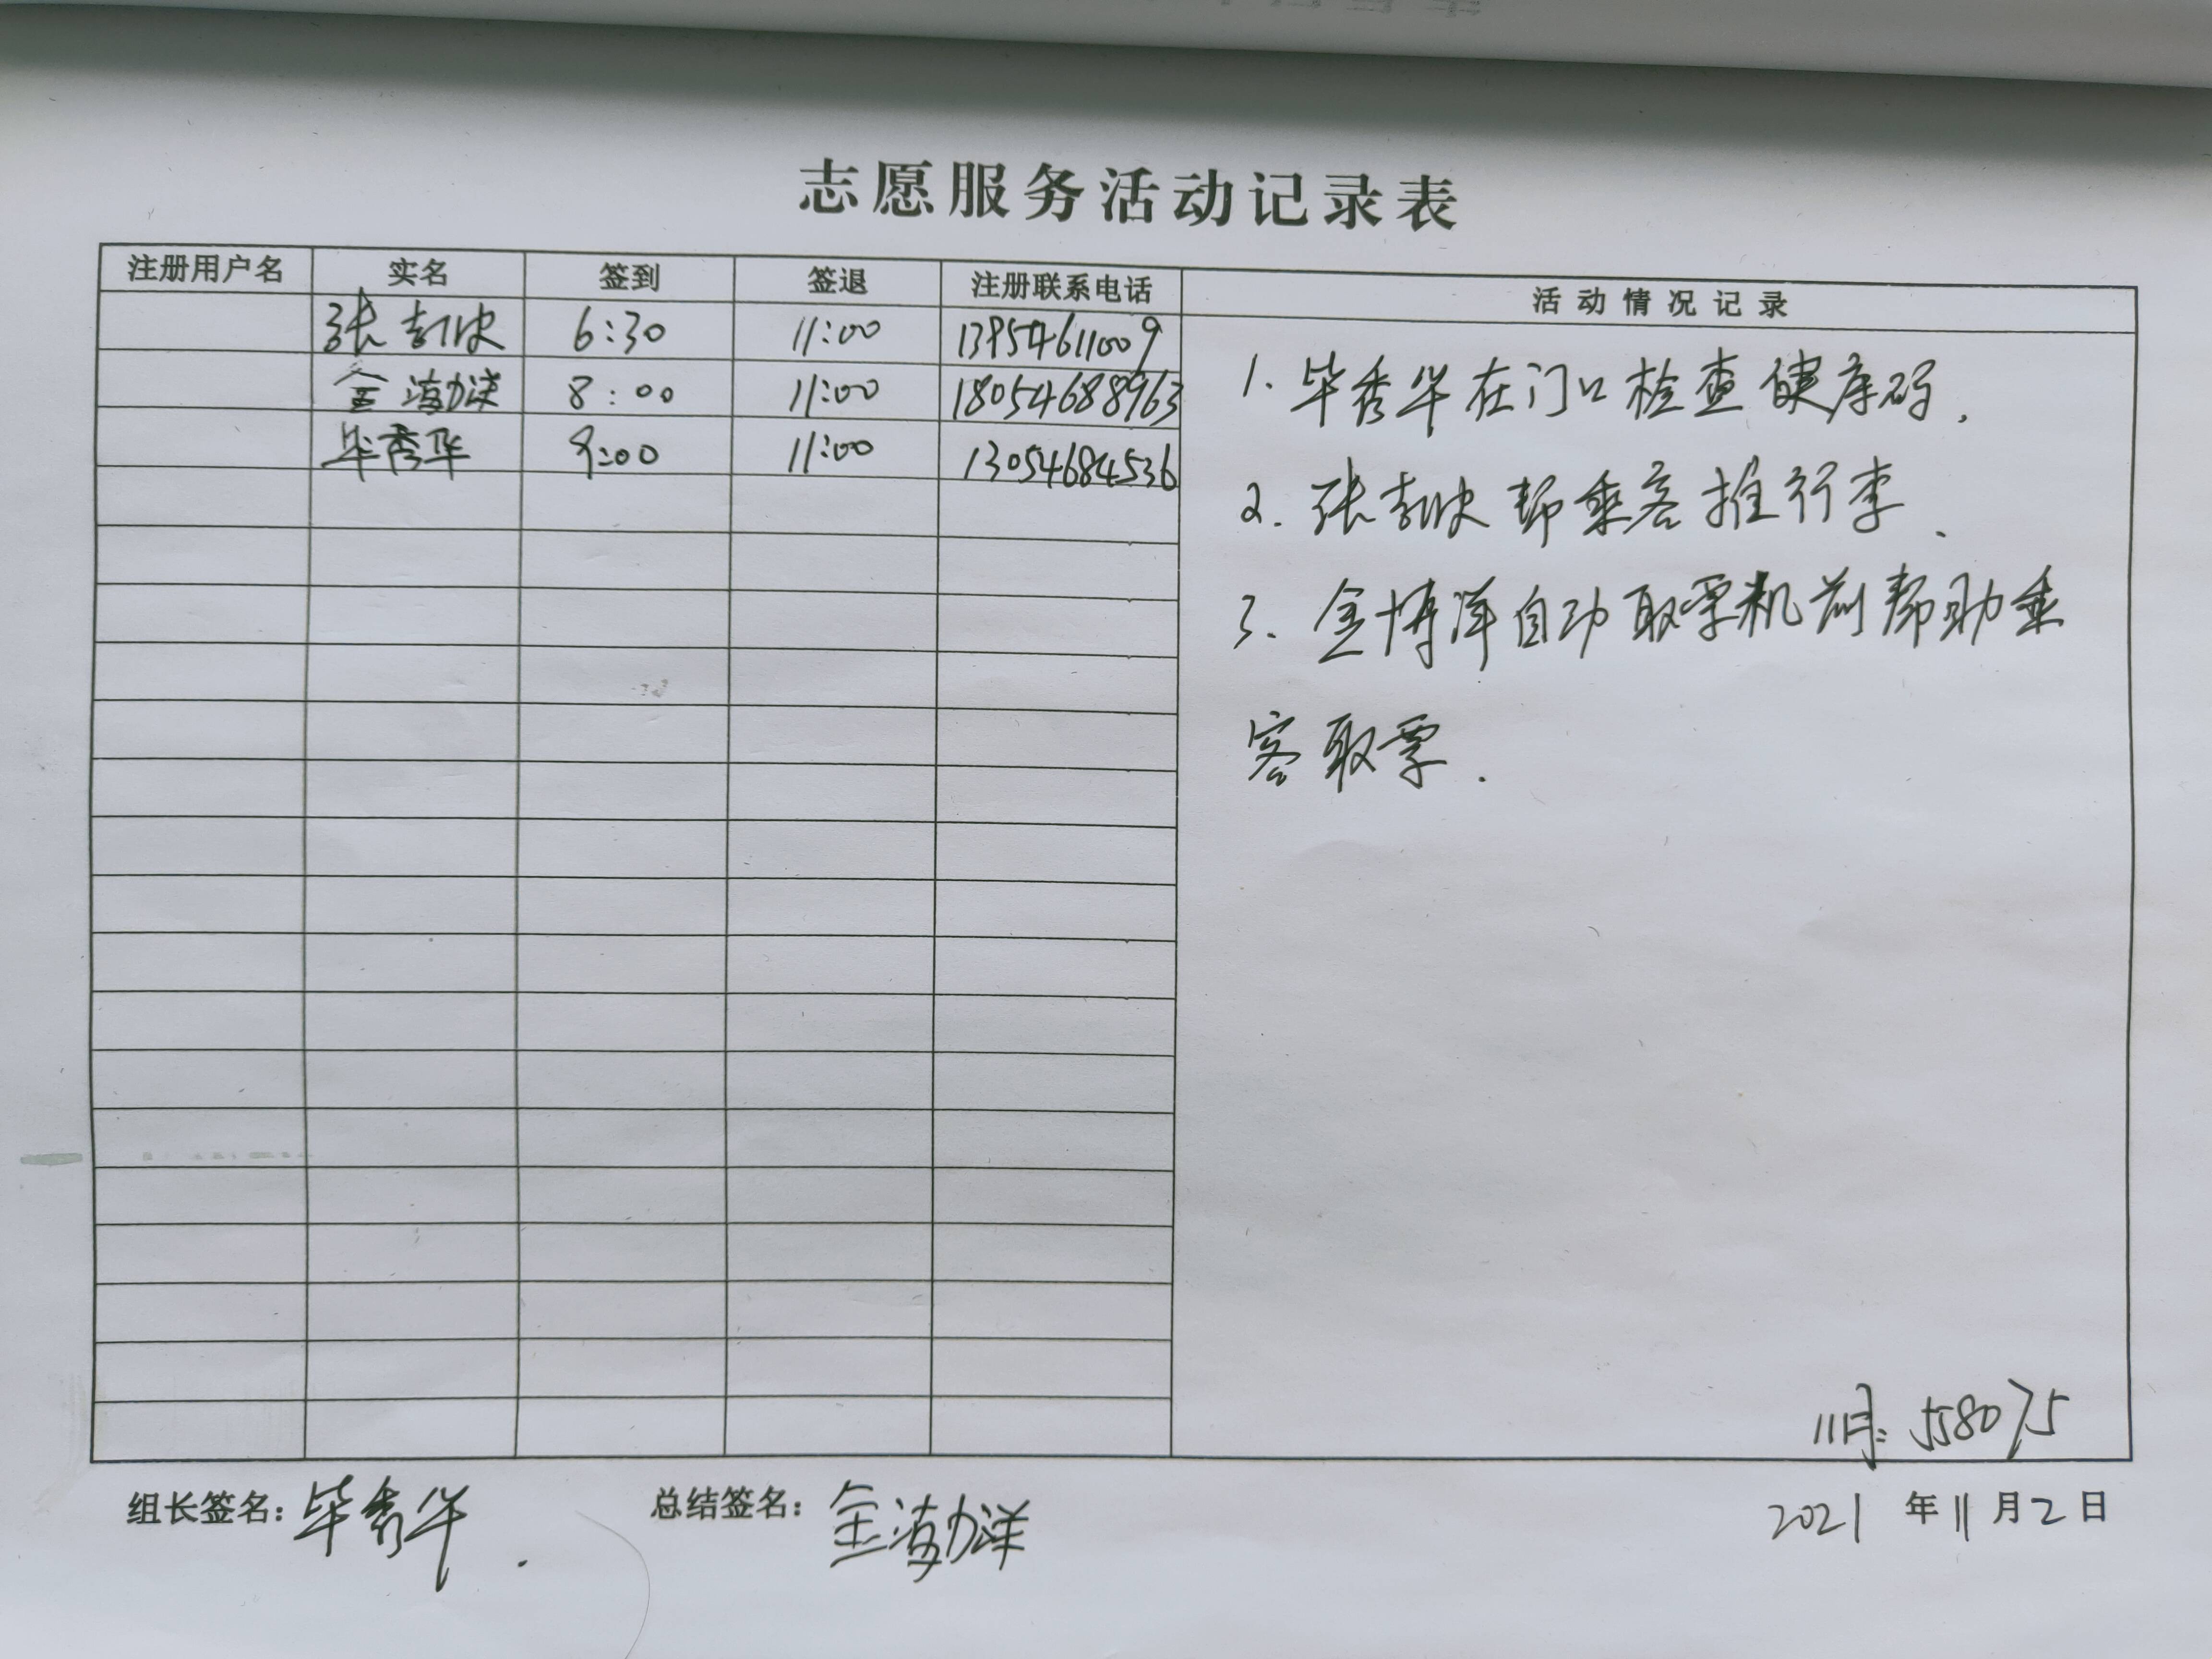 志愿服务活动记录表
注册用户名 实名 签到 签退 注册联系电话 活动情况记录
张 6:30 11:00 13954611009
金渤洋 8:00 11:00 18054688963
毕秀华 8:00 11:00 13054684536
1. 毕秀华在门口检查健康码.
2. 张 帮乘客推行李.
3. 金博洋自动取票机前帮助乘
客取票.
11月: 55807
组长签名: 毕秀华. 总结签名: 金渤洋 2021年11月2日